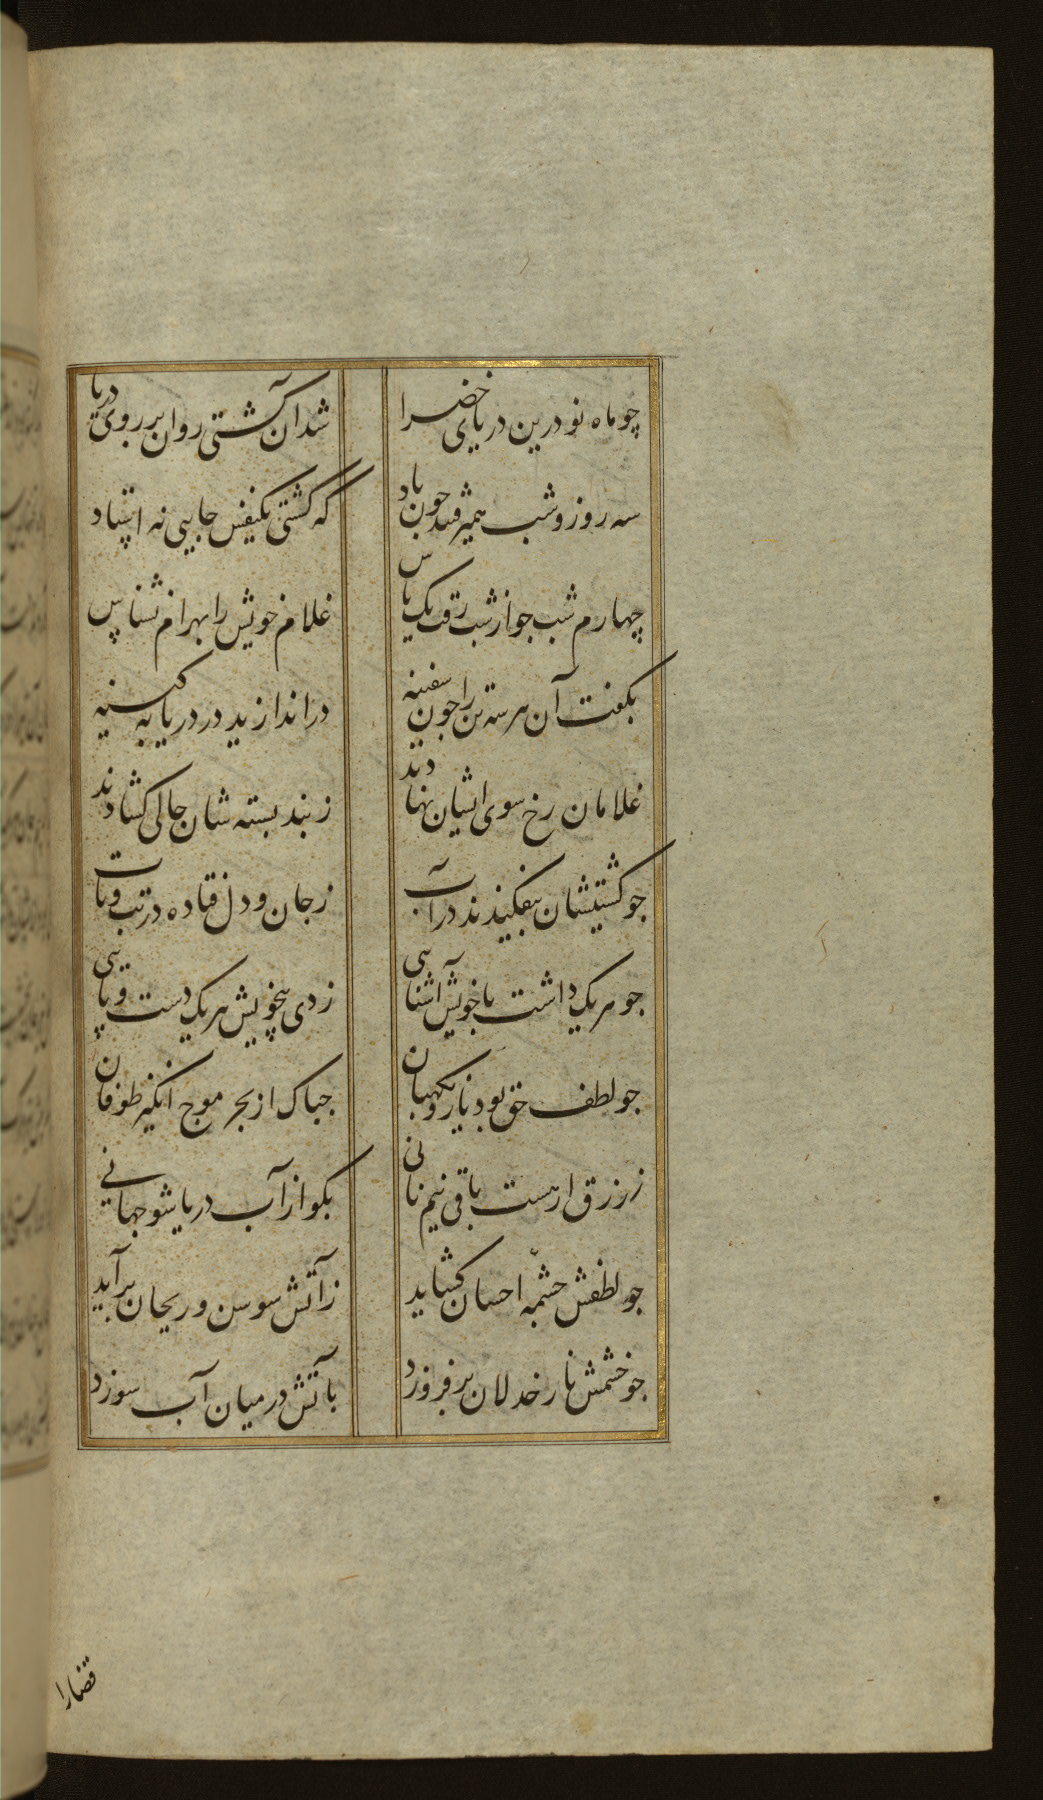 چو ماه نو درین دریای خضرا شد آن کشتی روان بر روی دریا
سه روز و شب همیرفتند چون باد که کشتی یکنفس جایی نه استاد
چهارم شب جو از شب رفت یک پاس غلام خویش را بهرام نشناس
بگفت آن هر سه تن را جون سفینه در اندازید در دریا به کینه
غلامان رخ سوی ایشان نهادند ز بند بسته شان حالی کشادند
جو کشتیشان بیفکندند در آب ز جان و دل فتاده در تب و تاب
جو هر یک داشت با خویش آشنایی زدی بیخویش هر یک دست و پایی
جو لطف حق بود یار و نکهبان جباک از بحر موج انگیز طوفان
ز رزق ار هست باقی نیم نانی بکو از آب دریا شو جهانی
جو لطفش جشمهٔ احسان کشاید ز آتش سوسن و ریحان برآید
جو خشمش نار خذلان بر فروزد بآتش در میان آب سوزد
قضارا